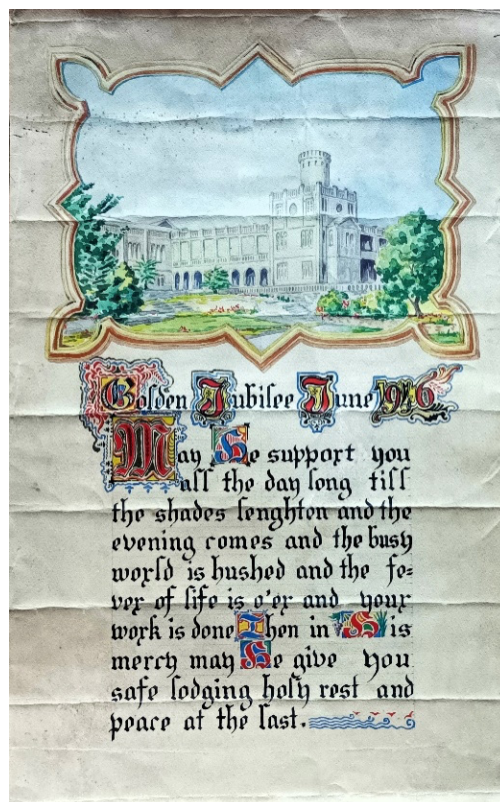 Golden Jubilee June 1946
May He support you
all the day long till
the shades lenghten and the
evening comes and the busy
world is hushed and the fe=
ver of life is o'er and your
work is done Then in His
mercy may He give you
safe lodging holy rest and
peace at the last.